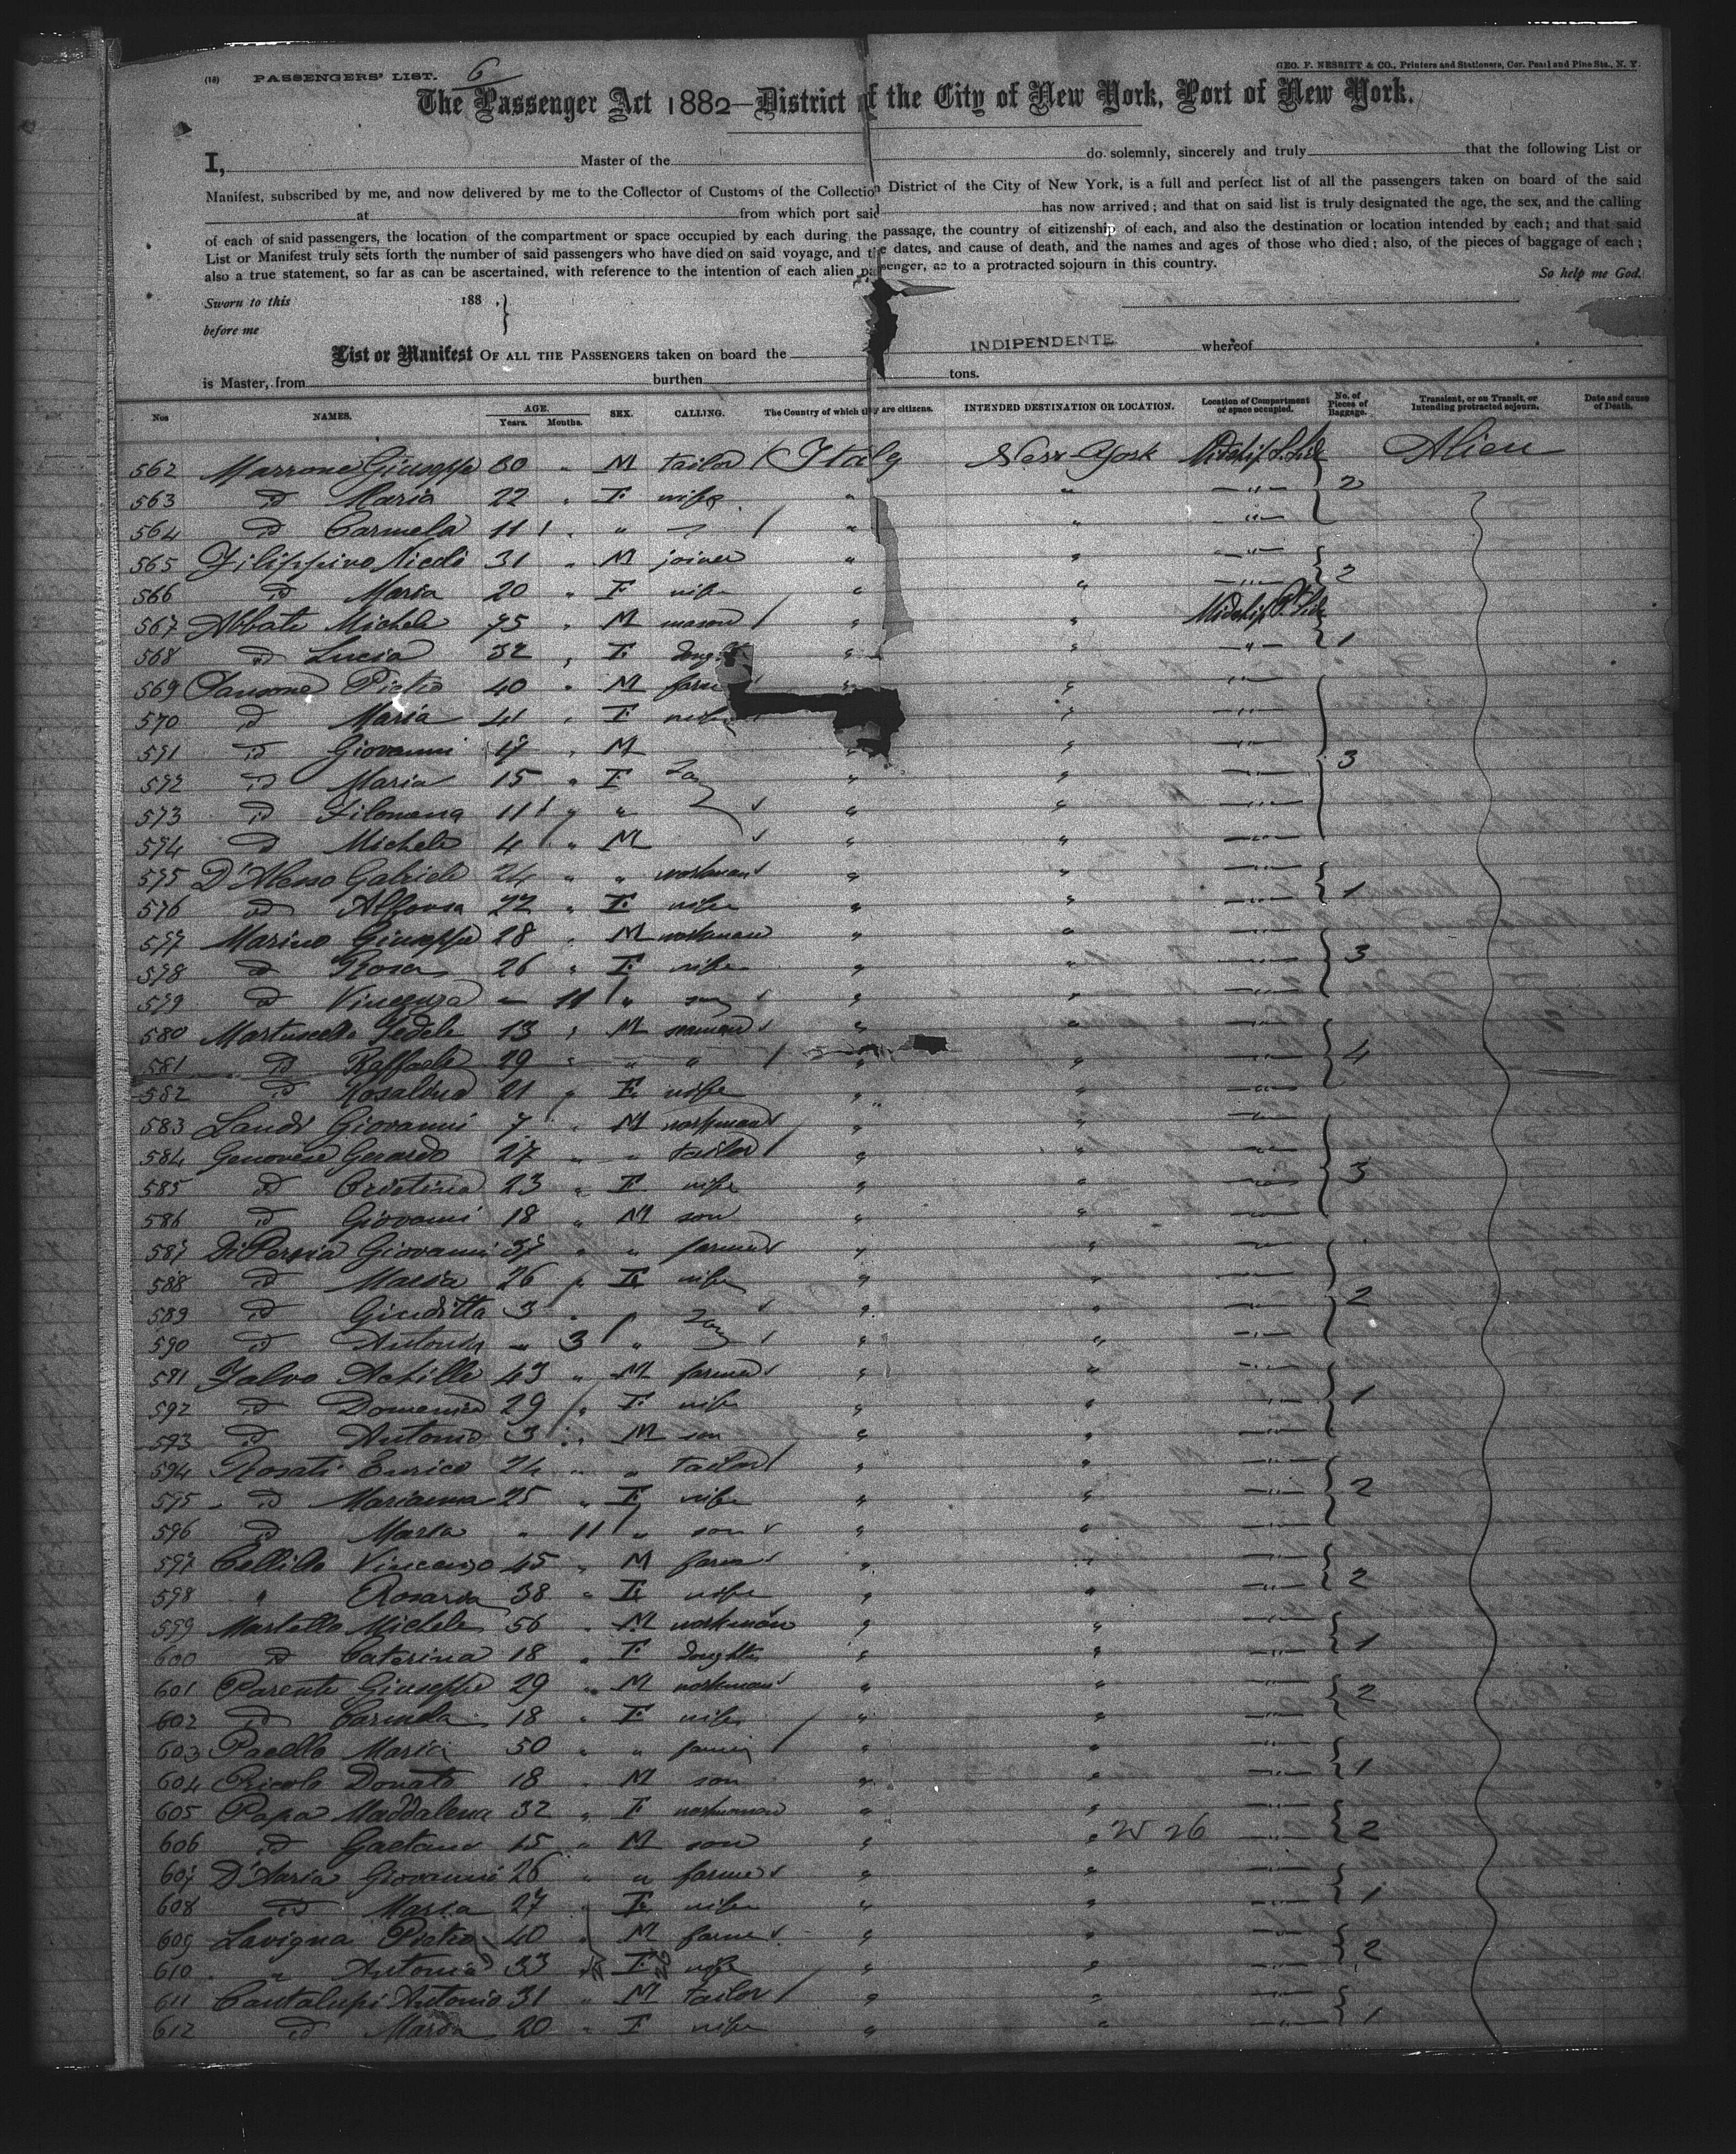 (18) PASSENGERS' LIST. 6
GEO. F. NESBITT & CO., Printers and Stationers, Cor. Pearl and Pine Sts., N. Y.
The Passenger Act 1882—District of the City of New York, Port of New York.
I, Master of the do solemnly, sincerely and truly that the following List or
Manifest, subscribed by me, and now delivered by me to the Collector of Customs of the Collection District of the City of New York, is a full and perfect list of all the passengers taken on board of the said
at from which port said has now arrived; and that on said list is truly designated the age, the sex, and the calling
of each of said passengers, the location of the compartment or space occupied by each during the passage, the country of citizenship of each, and also the destination or location intended by each; and that said
List or Manifest truly sets forth the number of said passengers who have died on said voyage, and the dates, and cause of death, and the names and ages of those who died; also, of the pieces of baggage of each;
also a true statement, so far as can be ascertained, with reference to the intention of each alien passenger, as to a protracted sojourn in this country. So help me God.
Sworn to this 188 . }
before me
List or Manifest OF ALL THE PASSENGERS taken on board the INDIPENDENTE whereof
is Master, from burthen tons.
Nos NAMES. AGE. Years. Months. SEX. CALLING. The Country of which they are citizens. INTENDED DESTINATION OR LOCATION. Location of Compartment or space occupied. No. of Pieces of Baggage. Transient, or on Transit, or Intending protracted sojourn. Date and cause of Death.
562 Marrone Giuseppe 30 " M tailor Italy New-York Midship S. Side Alien
563 id Maria 22 " F wife " " " 2
564 id Carmela 11 " " " " "
565 Filippino 31 " M joiner " " "
566 id Maria 20 " F wife " " 2
567 Abbate Michele 75 " M mason " " Midship P. Side
568 id Lucia 32 " F " " " 1
569 Sansone Pietro 40 " M " " "
570 id Maria 41 " F wife " "
571 id Giovanni 17 " M " " "
572 id Maria 15 " F " " " 3
573 id Filomena 11 " " " " "
574 id Michele 4 " M " " "
575 D'Alesso Gabriele 24 " " workman " " "
576 id Alfonsa 22 " F wife " " " 1
577 Marino Giuseppe 28 " M workman " " "
578 id Rosa 26 " F wife " " " 3
579 id Vincenza — 11 " " " "
580 Martuscello Fedele 13 " M seaman " " "
581 id Raffaele 29 " " " " " " 4
582 id Rosalina 21 " F wife " " "
583 Landi Giovanni 7 " M workman " " "
584 Genovese Gerardo 27 " " tailor " " "
585 id Cristina 23 " F wife " " " 3
586 id Giovanni 18 " M son " " "
587 Di Persia Giovanni 37 " " farmer " " "
588 id Maria 26 " F wife " " "
589 id Giuditta 3 " " " " 2
590 id Antonia — 3 " " " "
591 Falvo Achille 43 " M farmer " " "
592 id Domenica 29 " F wife " " " 1
593 id Antonio 3 " M son " " "
594 Rosati Enrico 24 " " tailor " " "
595 id Marianna 25 " F wife " " " 2
596 id Maria " 11 " son " " "
597 Vincenzo 45 " M farmer " " "
598 " Rosaria 38 " F wife " " " 2
599 Martello Michele 56 " M workman " " "
600 id Caterina 18 " F doughter " " " 1
601 Parente Giuseppe 29 " M workman " " "
602 id Carmela 18 " F wife " " " 2
603 Pacello Maria 50 " " " " "
604 Donato 18 " M son " " " 1
605 Papa Maddalena 32 " F workwoman " " "
606 id Gaetano 15 " M son " " W 26 " 2
607 D'Aria Giovanni 26 " " farmer " " "
608 id Maria 27 " F wife " " " 1
609 Lavigna Pietro 40 " M farmer " " "
610 " Antonia 33 " F wife " " " 2
611 Cantalupi Antonio 31 " M tailor " " "
612 id Maria 20 " F wife " " " 1